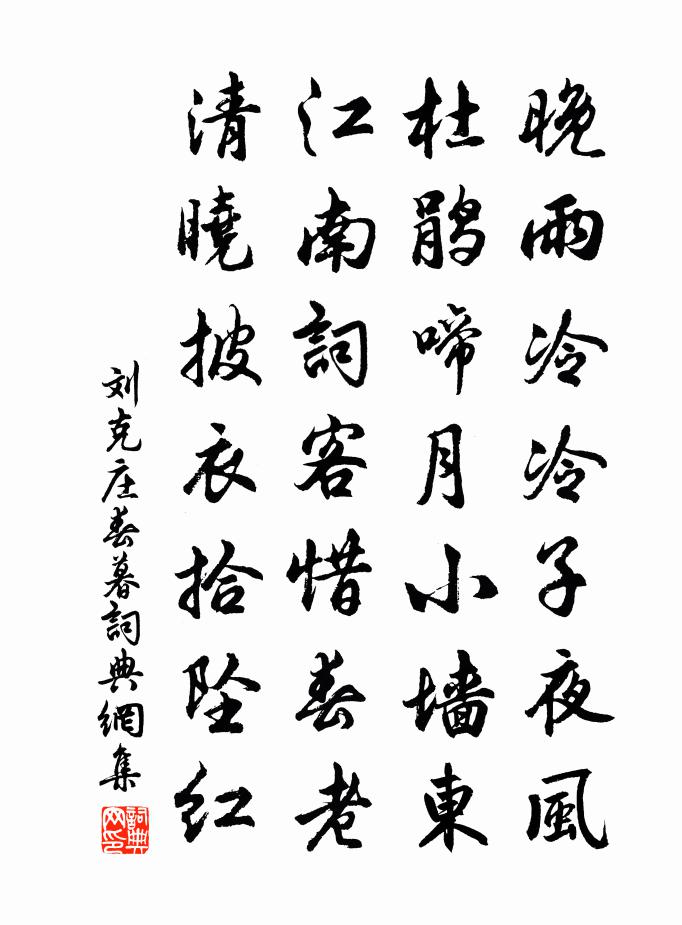 晚雨冷冷子夜風
杜鹃啼月小墻東
江南詞客惜春老
清曉披衣拾坠红
刘克庄春暮詞典網集
詞典网印